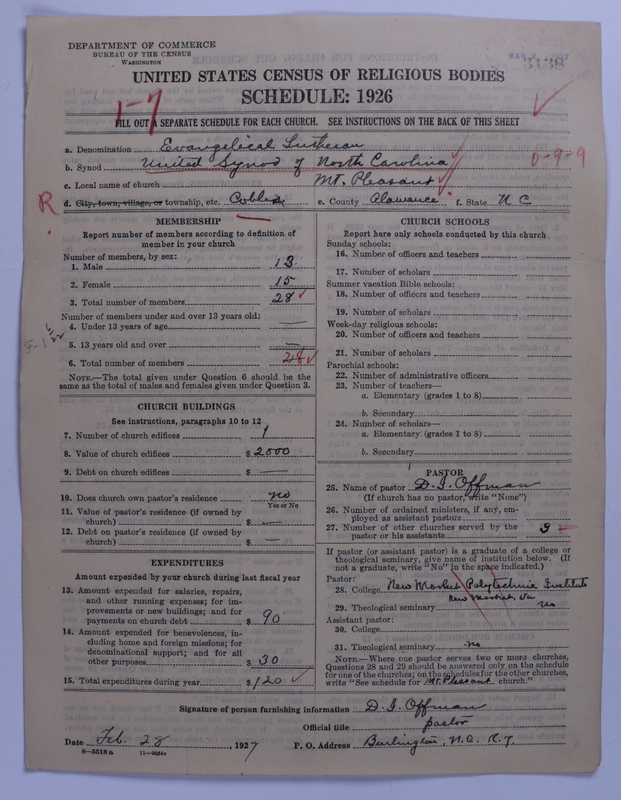 DEPARTMENT OF COMMERCE
BUREAU OF THE CENSUS
WASHINGTON
3138
UNITED STATES CENSUS OF RELIGIOUS BODIES
SCHEDULE: 1926
1-7
FILL OUT A SEPARATE SCHEDULE FOR EACH CHURCH. SEE INSTRUCTIONS ON THE BACK OF THIS SHEET
a. Denomination Evangelical Lutheran
b. Synod United Synod of North Carolina
0-9-9
c. Local name of church Mt. Pleasant
R
d. City, town, village, or township, etc. Cobles e. County Alamance f. State N C
MEMBERSHIP
Report number of members according to definition of member in your church
Number of members, by sex:
1. Male 13
2. Female 15
3. Total number of members 28
Number of members under and over 13 years old:
4. Under 13 years of age —
5. 13 years old and over —
6. Total number of members 28
NOTE.—The total given under Question 6 should be the
same as the total of males and females given under Question 3.
CHURCH BUILDINGS
See instructions, paragraphs 10 to 12
7. Number of church edifices 1
8. Value of church edifices $ 2000
9. Debt on church edifices $ —
10. Does church own pastor's residence no
Yes or No
11. Value of pastor's residence (if owned by
church) $ —
12. Debt on pastor's residence (if owned by
church) $ —
EXPENDITURES
Amount expended by your church during last fiscal year
13. Amount expended for salaries, repairs,
and other running expenses; for im-
provements or new buildings; and for
payments on church debt $ 90
14. Amount expended for benevolences, in-
cluding home and foreign missions; for
denominational support; and for all
other purposes $ 30
15. Total expenditures during year $ 120
CHURCH SCHOOLS
Report here only schools conducted by this church
Sunday schools:
16. Number of officers and teachers
17. Number of scholars
Summer vacation Bible schools:
18. Number of officers and teachers
19. Number of scholars
Week-day religious schools:
20. Number of officers and teachers
21. Number of scholars
Parochial schools:
22. Number of administrative officers
23. Number of teachers—
a. Elementary (grades 1 to 8)
b. Secondary
24. Number of scholars—
a. Elementary (grades 1 to 8)
b. Secondary
PASTOR
25. Name of pastor D. I. Offman
(If church has no pastor, write "None")
26. Number of ordained ministers, if any, em-
ployed as assistant pastors
27. Number of other churches served by the
pastor or his assistants 3
If pastor (or assistant pastor) is a graduate of a college or
theological seminary, give name of institution below. (If
not a graduate, write "No" in the space indicated.)
Pastor:
28. College New Market Polytechnic Institute
New Market, Va
29. Theological seminary no
Assistant pastor:
30. College
31. Theological seminary no
NOTE.—Where one pastor serves two or more churches,
Questions 28 and 29 should be answered only on the schedule
for one of the churches; on the schedules for the other churches,
write "See schedule for Mt. Pleasant church."
Signature of person furnishing information D. I. Offman
Official title pastor
Date Feb. 28, 1927 P. O. Address Burlington, N.C. R.7.
8-5518a 11-9054a